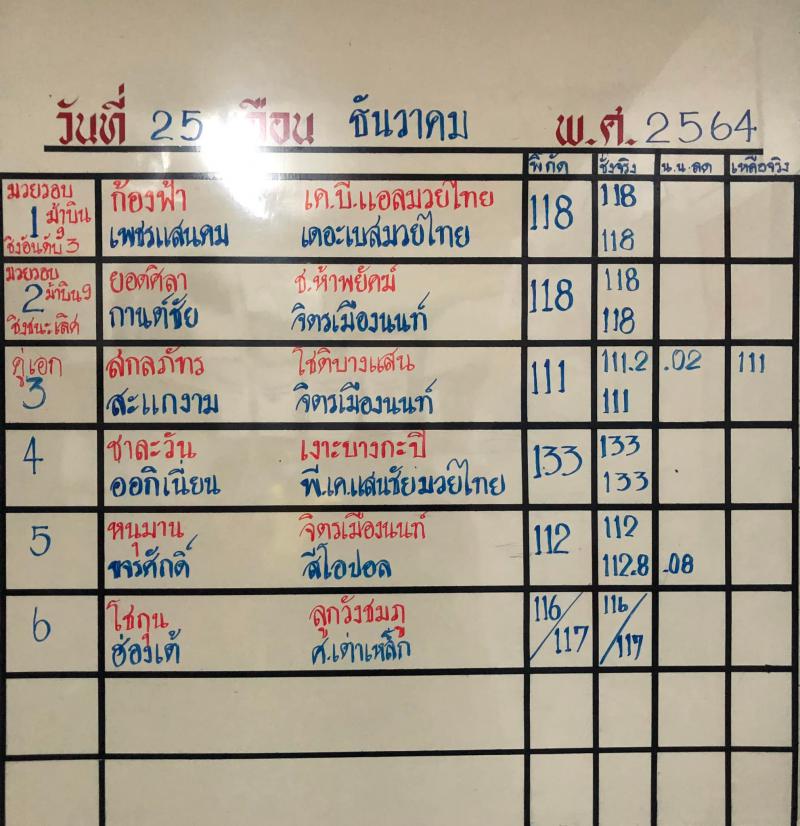 วันที่ 25 เดือน ธันวาคม พ.ศ. 2564
พิกัด ชั่งจริง น.น.ลด เหลือจริง
มวยรอบ ก้องฟ้า เค.บี.แอลมวยไทย 118 118
1 ม้าบิน 9
ชิงอันดับ 3 เพชรแสนคม เดอะเบสมวยไทย 118
มวยรอบ ยอดศิลา ช.ห้าพยัคฆ์ 118 118
2 ม้าบิน 9
ชิงชนะเลิศ กานต์ชัย จิตรเมืองนนท์ 118
คู่เอก สกลภัทร โชติบางแสน 111 111.2 .02 111
3 สะแกงาม จิตรเมืองนนท์ 111
4 ชาละวัน เงาะบางกะปิ 133 133
ออกิเนี่ยน พี.เค.แสนชัยมวยไทย 133
5 หนุมาน จิตรเมืองนนท์ 112 112
ขจรศักดิ์ สีโอปอล 112.8 .08
6 โชกุน ลูกวังชมภู 116/117 116/117
ฮ่องเต้ ศ.เต่าเหล็ก